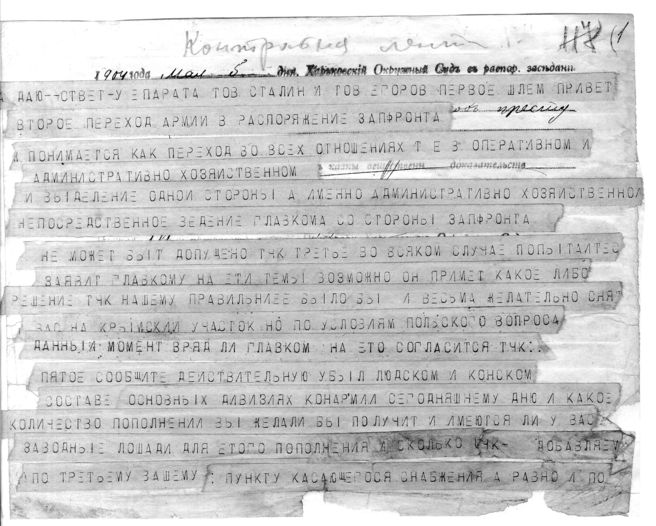 Контрольная лента 1.
(1
1904 года Мая 5 дня, Харьковскій Окружный Судъ въ распор. засѣдани
ДАЮ-ОТВЕТ-У ЕПАРАТА ТОВ СТАЛИН И ТОВ ЕГОРОВ ПЕРВОЕ ШЛЕМ ПРИВЕТ
ВТОРОЕ ПЕРЕХОД АРМИИ В РАСПОРЯЖЕНИЕ ЗАПФРОНТА
ПОНИМАЕТСЯ КАК ПЕРЕХОД ВО ВСЕХ ОТНОШЕНИЯХ Т Е В ОПЕРАТИВНОМ И
доказательств
АДМИНИСТРАТИВНО ХОЗЯИСТВЕННОМ
И ВЫДЕЛЕНИЕ ОДНОЙ СТОРОНЫ А ИМЕННО АДМИНИСТРАТИВНО ХОЗЯИСТВЕННОИ
НЕПОСРЕДСТВЕННОЕ ВЕДЕНИЕ ГЛАВКОМА СО СТОРОНЫ ЗАПФРОНТА
НЕ МОЖЕТ БЫТ ДОПУЩЕНО ТЧК ТРЕТЬЕ ВО ВСЯКОМ СЛУЧАЕ ПОПЫТАИТЕС
ЗАЯВИТ ГЛАВКОМУ НА ЕТИ ТЕМЫ ВОЗМОЖНО ОН ПРИМЕТ КАКОЕ ЛИБО
РЕШЕНИЕ ТЧК НАШЕМУ ПРАВИЛЬНИЕЕ БЫЛО БЫ И ВЕСЬМА ЖЕЛАТЕЛЬНО СНЯТ
ВАС НА КРЫМСКИИ УЧАСТОК НО ПО УСЛОВИЯМ ПОЛЬСКОГО ВОПРОСА
ДАННЫЙ МОМЕНТ ВРЯД ЛИ ГЛАВКОМ НА ЕТО СОГЛАСИТСЯ ТЧК
ПЯТОЕ СООБЩИТЕ ДЕЙСТВИТЕЛЬНУЮ УБЫЛ ЛЮДСКОМ И КОНСКОМ
СОСТАВЕ ОСНОВНЫХ ДИВИЗИЯХ КОНАРМИИ СЕГОДНЯШНЕМУ ДНЮ И КАКОЕ
КОЛИЧЕСТВО ПОПОЛНЕНИИ ВЫ ЖЕЛАЛИ БЫ ПОЛУЧИТ И ИМЕЮТСЯ ЛИ У ВАС
ЗАВОДНЫЕ ЛОШАДИ ДЛЯ ЕТОГО ПОПОЛНЕНИЯ И СКОЛЬКО ТЧК- ДОБАВЛЯЕМ
ПО ТРЕТЬЕМУ ВАШЕМУ ПУНКТУ КАСАЮЩЕГОСЯ СНАБЖЕНИЯ А РАВНО И ПО